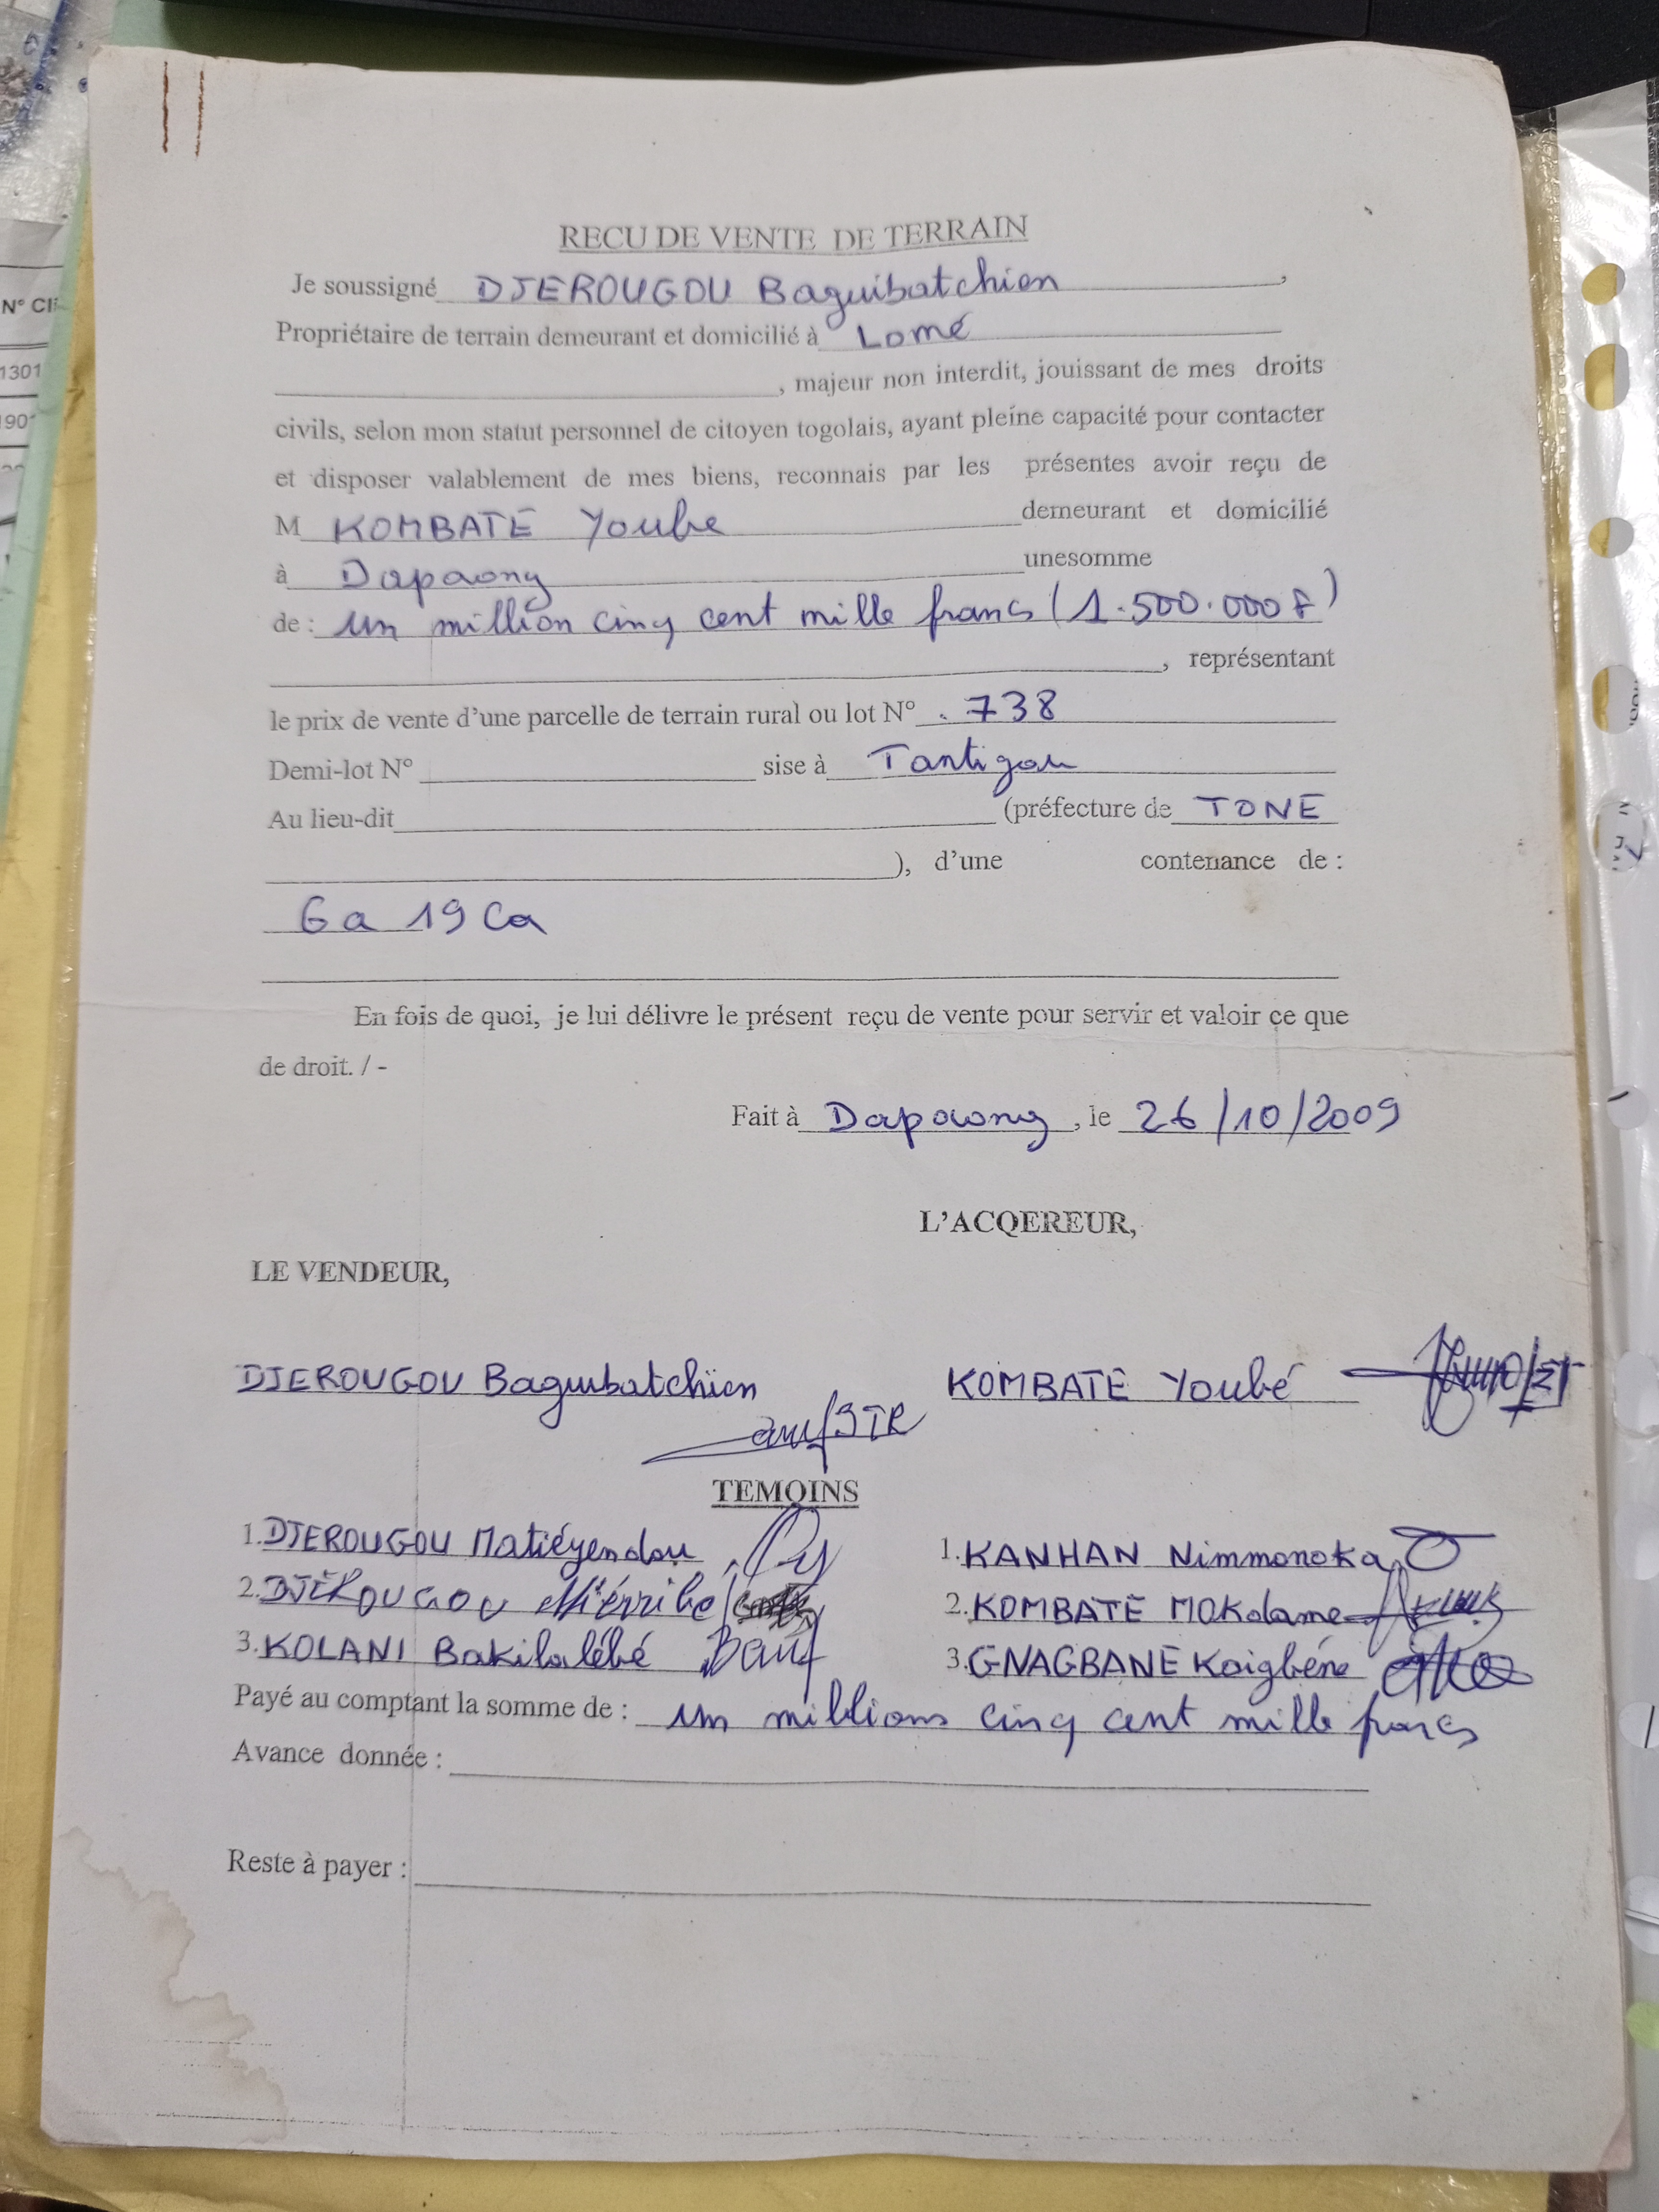 RECU DE VENTE DE TERRAIN
Je soussigné DJEROUGOU Baguibatchien,
Propriétaire de terrain demeurant et domicilié à Lomé
, majeur non interdit, jouissant de mes droits
civils, selon mon statut personnel de citoyen togolais, ayant pleine capacité pour contacter
et disposer valablement de mes biens, reconnais par les présentes avoir reçu de
M KOMBATE Yoube demeurant et domicilié
à Dapaong unesomme
de : un million cinq cent mille francs (1.500.000 F)
, représentant
le prix de vente d'une parcelle de terrain rural ou lot N° 738
Demi-lot N° sise à Tantigou
Au lieu-dit (préfecture de TONE
), d'une contenance de :
6a 19 Ca
En fois de quoi, je lui délivre le présent reçu de vente pour servir et valoir ce que
de droit. / -
Fait à Dapaong, le 26/10/2009
L'ACQEREUR,
LE VENDEUR,
DJEROUGOU Baguibatchien KOMBATE Youbé
TEMOINS
1. DJEROUGOU Matiéyendou 1. KANHAN Nimmonoka
2. DJEROUGOU 2. KOMBATE MOKdame
3. KOLANI Bakilalébé 3. GNAGBANE Kaigbéne
Payé au comptant la somme de : un millions cinq cent mille francs
Avance donnée :
Reste à payer :
N° Cli
1301